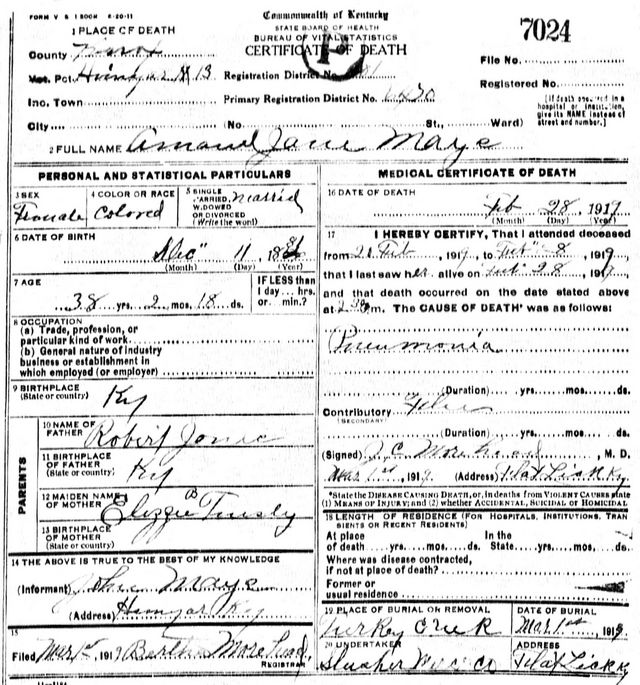 FORM V S 1 500M 6-20-11
Commonwealth of Kentucky
STATE BOARD OF HEALTH
BUREAU OF VITAL STATISTICS
CERTIFICATE OF DEATH
7024
1 PLACE OF DEATH
County Knox
Vot. Pct. Himyar # 13
Inc. Town
City (No. St., Ward)
Registration District No.
Primary Registration District No. 6430
File No.
Registered No.
[If death occurred in a hospital or institution, give its NAME instead of street and number.]
2 FULL NAME Amand Jane Maye
PERSONAL AND STATISTICAL PARTICULARS
3 SEX Female
4 COLOR OR RACE Colored
5 SINGLE MARRIED, WIDOWED OR DIVORCED (Write the word) Married
6 DATE OF BIRTH
Dec 11 18
(Month) (Day) (Year)
7 AGE
38 yrs. 2 mos. 18 ds.
IF LESS than 1 day hrs. or min.?
8 OCCUPATION
(a) Trade, profession, or particular kind of work
(b) General nature of industry business or establishment in which employed (or employer)
9 BIRTHPLACE (State or country) Ky
PARENTS
10 NAME OF FATHER Robert Jones
11 BIRTHPLACE OF FATHER (State or country) Ky
12 MAIDEN NAME OF MOTHER Elizzie Tinsly
13 BIRTHPLACE OF MOTHER (State or country)
14 THE ABOVE IS TRUE TO THE BEST OF MY KNOWLEDGE
(Informant) John Maye
(Address) Himyar Ky
15
Filed Mar 1st, 1919 Bertha Morehead
REGISTRAR
MEDICAL CERTIFICATE OF DEATH
16 DATE OF DEATH
Feb 28 1919
(Month) (Day) (Year)
17 I HEREBY CERTIFY, That I attended deceased
from 21 Feb, 1919, to Feb 8, 1919
that I last saw her alive on Feb 28, 1919
and that death occurred on the date stated above
at m. The CAUSE OF DEATH* was as follows:
Pneumonia
(Duration) yrs. mos. ds.
Contributory
(SECONDARY)
(Duration) yrs. mos. ds.
(Signed) J C Morehead, M. D.
Mar 1st, 1919 (Address) Flat Lick Ky
*State the DISEASE CAUSING DEATH, or, in deaths from VIOLENT CAUSES state (1) MEANS OF INJURY; and (2) whether ACCIDENTAL, SUICIDAL OR HOMICIDAL
18 LENGTH OF RESIDENCE (FOR HOSPITALS, INSTITUTIONS, TRANSIENTS OR RECENT RESIDENTS)
At place of death yrs. mos. ds. In the State yrs. mos. ds.
Where was disease contracted, if not at place of death?
Former or usual residence
19 PLACE OF BURIAL OR REMOVAL Turkey Creek
DATE OF BURIAL Mar 1st, 1919
20 UNDERTAKER Slusher
ADDRESS Flat Lick Ky